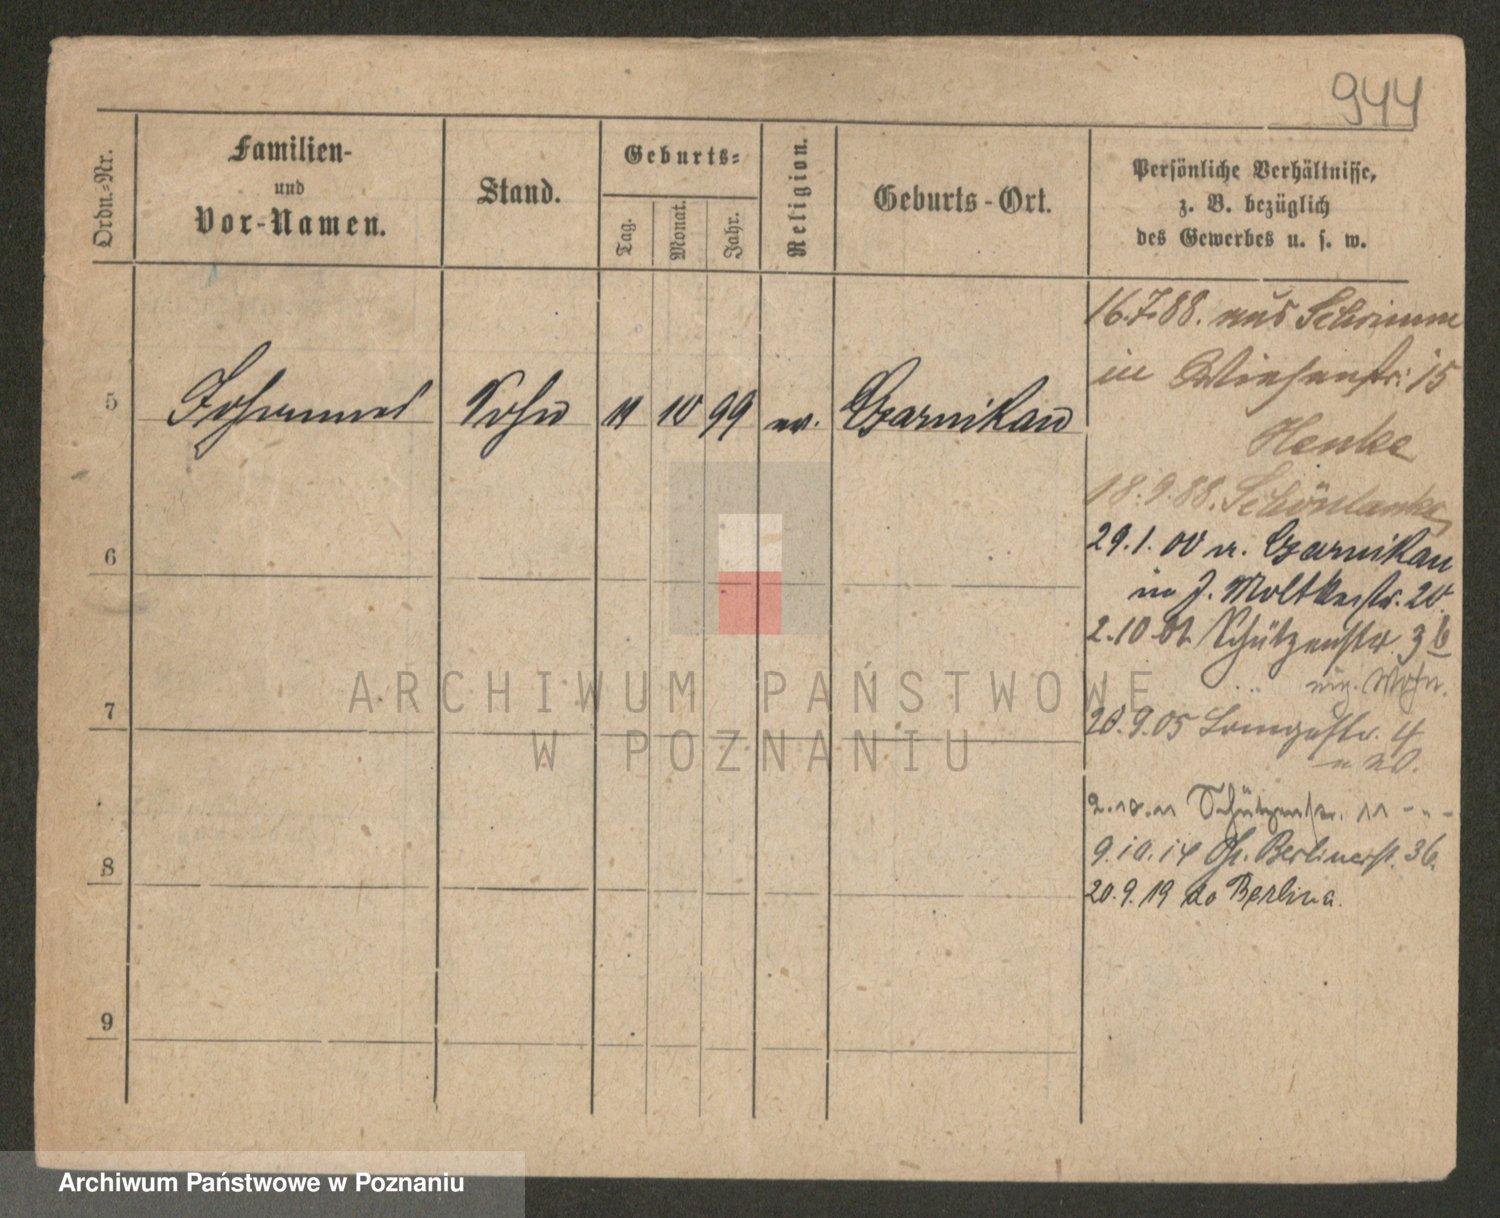 944
Ordn.-Nr.
Familien-
und
Vor-Namen.
Stand.
Geburts-
Tag.
Monat.
Jahr.
Religion.
Geburts-Ort.
Persönliche Verhältnisse,
z. B. bezüglich
des Gewerbes u. s. w.
5 Johannes Sohn 11 10 99 ev. Czarnikau
6
7
8
9
16.7.88. aus Schrimm
in Wiesenstr. 15
Henke
18.9.88. Schönlanke
29.1.00 v. Czarnikau
in J. Moltkestr. 20
2.10.01 Schützenstr. 3b
eig. Wohn.
20.9.05 Langestr. 4
2.10.11 Schützenstr. 11 - " -
9.10.14 Gr. Berlinerst. 36.
20.9.19 do Berlin a.
ARCHIWUM PAŃSTWOWE
W POZNANIU
Archiwum Państwowe w Poznaniu